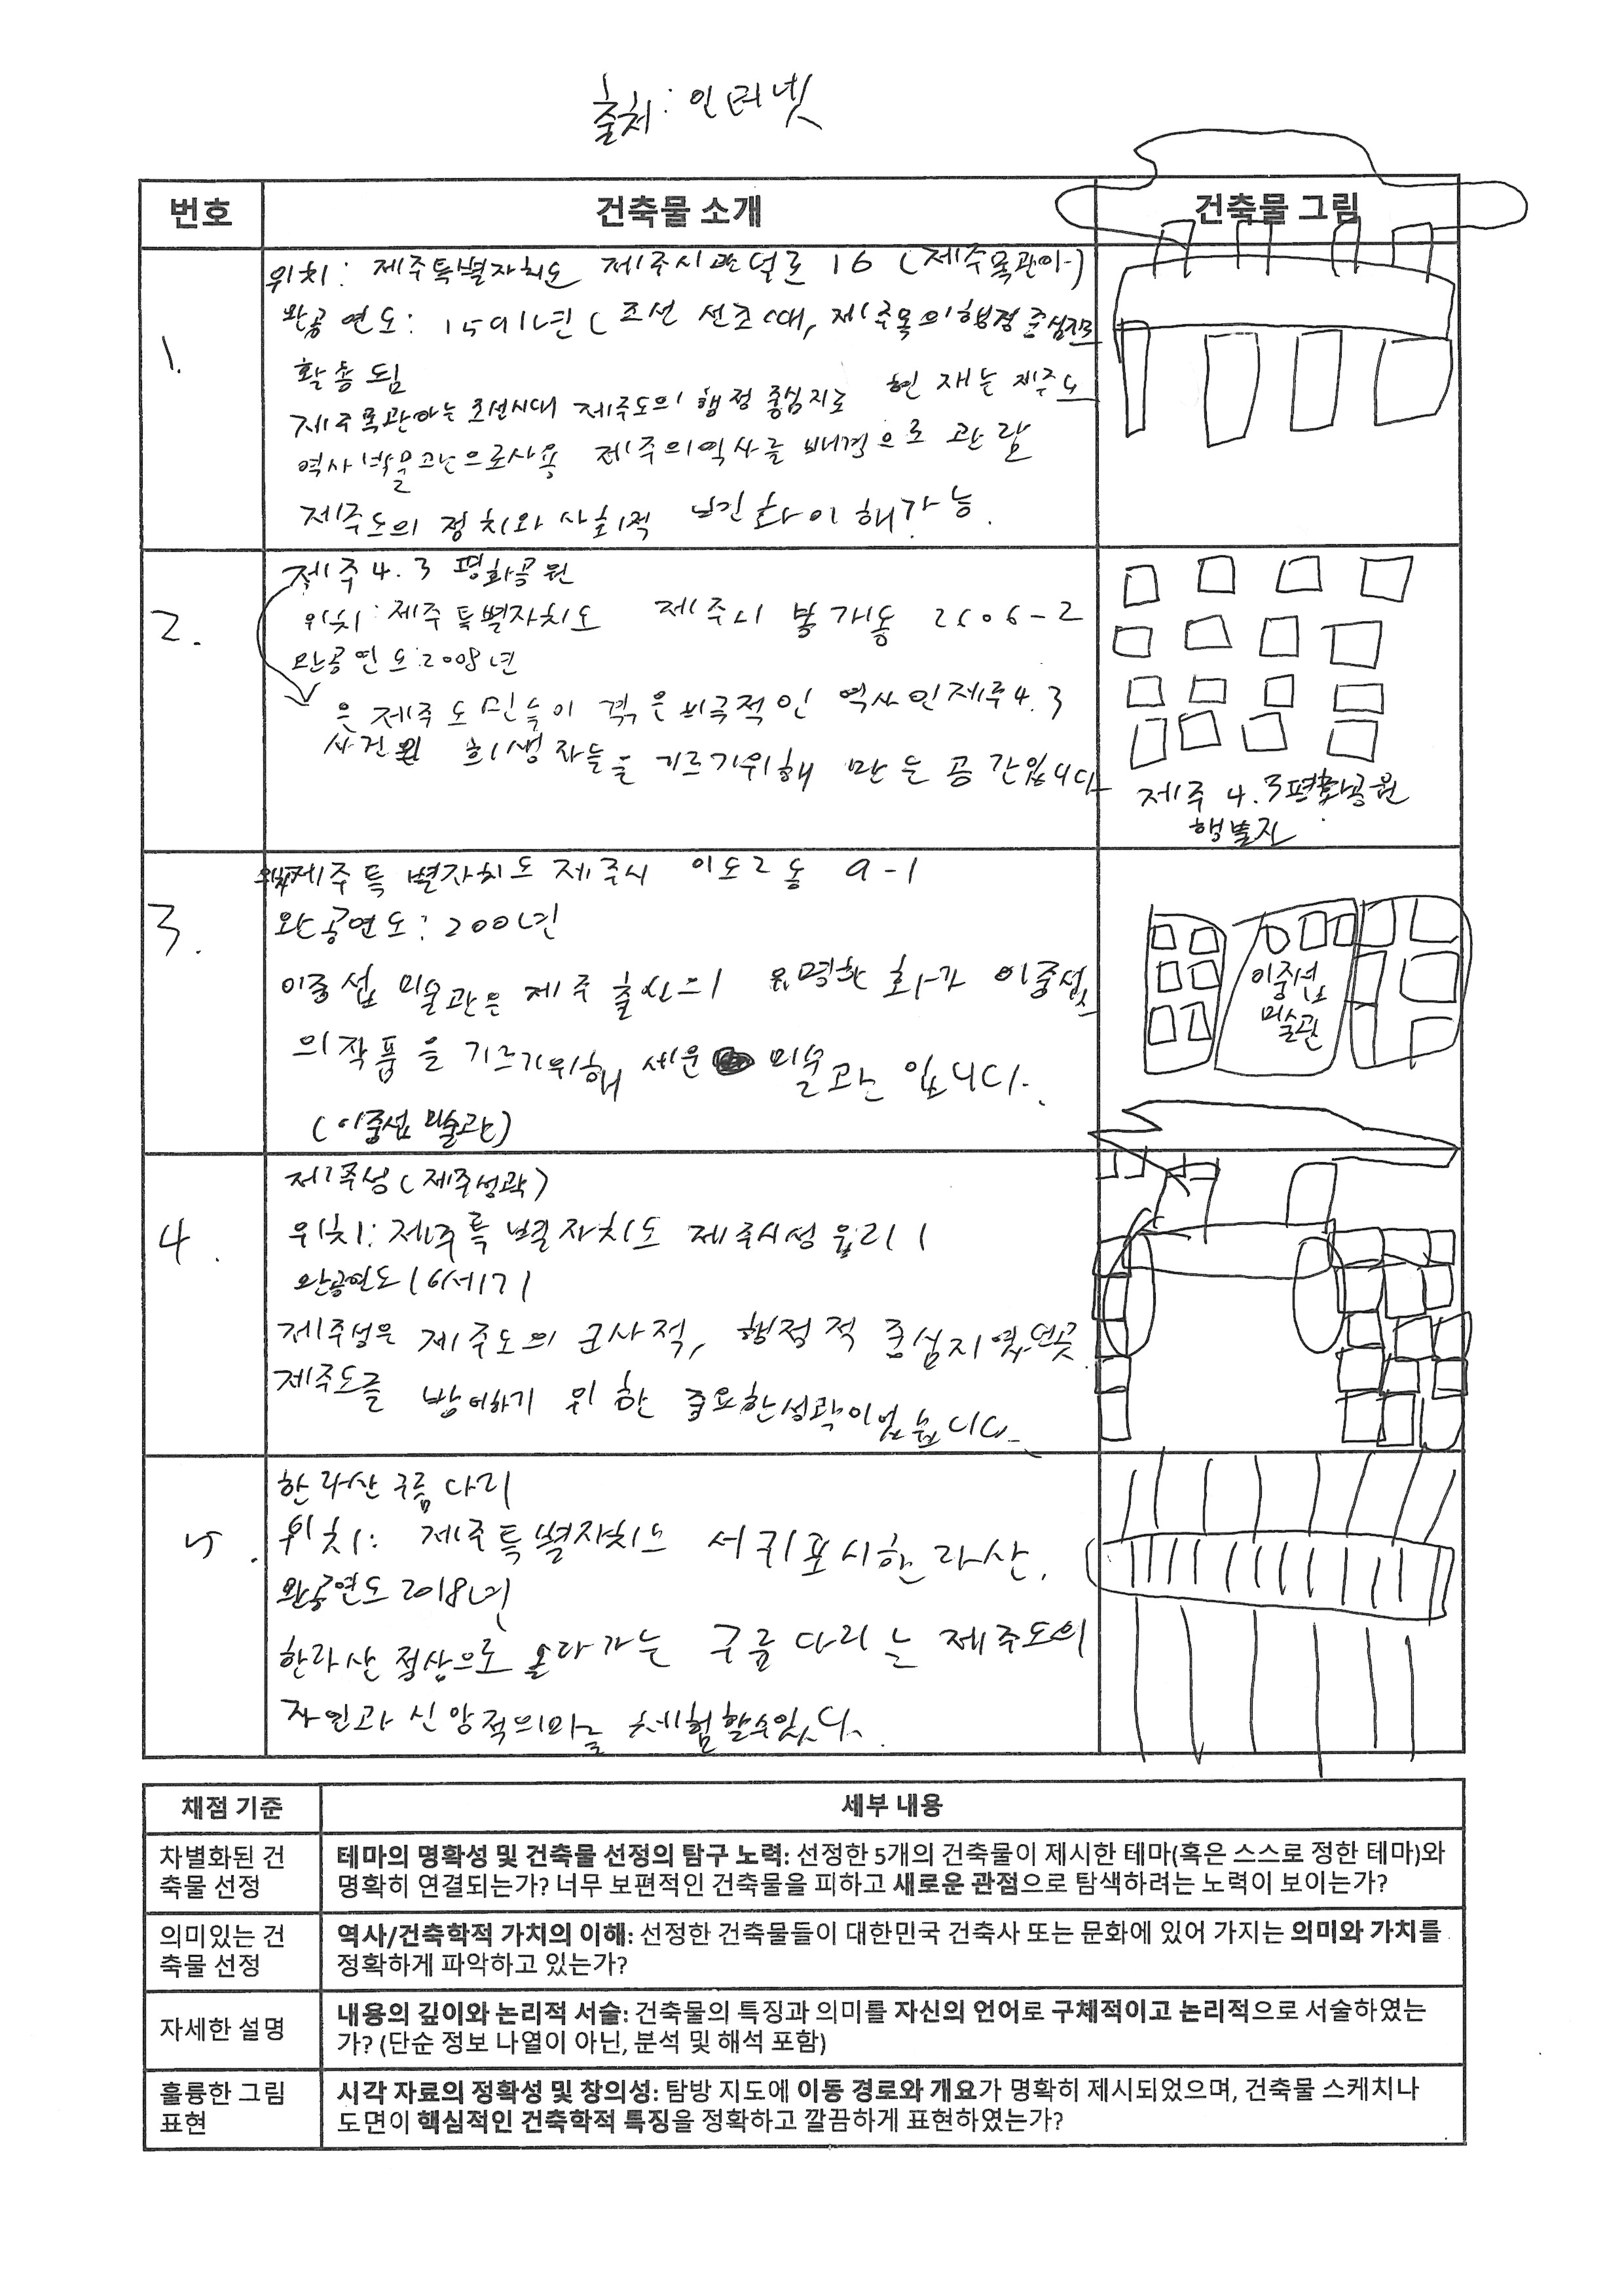 출처: 인터넷
번호 건축물 소개 건축물 그림
1. 위치: 제주특별자치도 제주시관덕로 16 (제주목관아)
완공 연도: 1591년 (조선 선조때, 제주목의행정 중심지로
활용됨
제주목관아는 조선시대 제주도의 행정 중심지로 현재는 제주도
역사박물관으로사용 제주의역사를 배경으로 관람
제주도의 정치와 사회적 변화 이해가능.
2. 제주4.3 평화공원
위치: 제주특별자치도 제주시 봉개동 2506-2
완공연도:2008년
은 제주도민들이 겪은 비극적인 역사인제주4.3
사건의 희생자들을 기르기위해 만든 공간입니다
제주 4.3평화공원
행불자
3. 위치제주특별자치도 제주시 이도2동 9-1
완공연도: 2001년
이중섭 미술관은 제주출신의 유명한 화가 이중섭
의작품을 기르기위해 세운 미술관 입니다.
(이중섭 미술관)
이중섭
미술관
4. 제주성(제주성곽)
위치: 제주특별자치도 제주시성읍리 1
완공연도16세기
제주성은 제주도의 군사적, 행정적 중심지였던곳
제주도를 방어하기 위한 중요한성곽이었습니다.
5. 한라산 구름다리
위치: 제주특별자치도 서귀포시한라산.
완공연도 2018년
한라산 정상으로 올라가는 구름다리는 제주도의
자연과 신앙적의미를 체험할수있다.
채점 기준 세부 내용
차별화된 건축물 선정 테마의 명확성 및 건축물 선정의 탐구 노력: 선정한 5개의 건축물이 제시한 테마(혹은 스스로 정한 테마)와
명확히 연결되는가? 너무 보편적인 건축물을 피하고 새로운 관점으로 탐색하려는 노력이 보이는가?
의미있는 건축물 선정 역사/건축학적 가치의 이해: 선정한 건축물들이 대한민국 건축사 또는 문화에 있어 가지는 의미와 가치를
정확하게 파악하고 있는가?
자세한 설명 내용의 깊이와 논리적 서술: 건축물의 특징과 의미를 자신의 언어로 구체적이고 논리적으로 서술하였는
가? (단순 정보 나열이 아닌, 분석 및 해석 포함)
훌륭한 그림 표현 시각 자료의 정확성 및 창의성: 탐방 지도에 이동 경로와 개요가 명확히 제시되었으며, 건축물 스케치나
도면이 핵심적인 건축학적 특징을 정확하고 깔끔하게 표현하였는가?